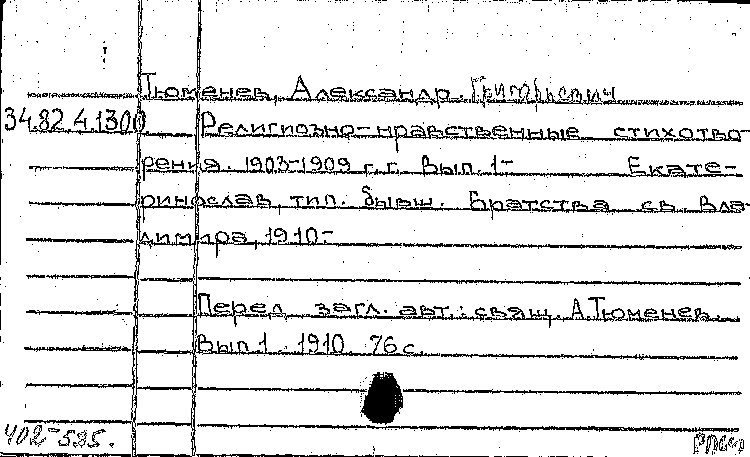 Тюменев, Александр Григорьевич
34.82.4.1300 Религиозно-нравственные стихотво-
рения. 1903-1909 г.г. Вып. 1- Екате-
ринослав, тип. бывш. Братства св. Вла-
димира, 1910-
Перед загл. авт.: свящ. А.Тюменев.
Вып 1. 1910. 76 с.
402-535.